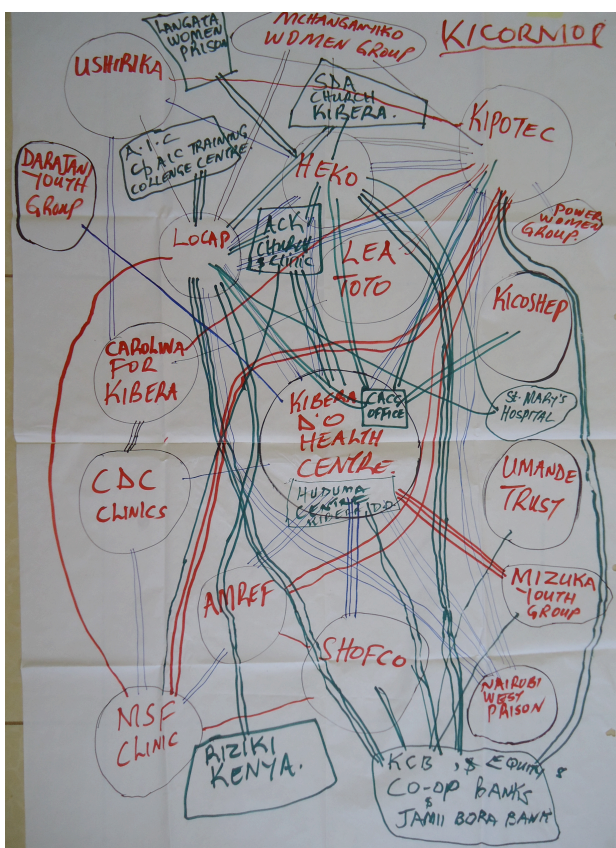 LANGATA
WOMEN
PRISON
MCHANGANYIKO
WOMEN GROUP
KICORNIOP
USHIRIKA
SDA
CHURCH
KIBERA.
KIPOTEC
A.I.C
C/o AIC TRAINING
COLLENGE CENTRE
HEKO
DARAJANI
YOUTH
GROUP
POWER
WOMEN
GROUP.
LOCAP
ACK
CHURCH
& CLINIC
LEA
TOTO
KICOSHEP
CAROLINA
FOR
KIBERA
KIBERA
D'O
HEALTH
CENTRE.
CACC
OFFICE
St. MARY'S
HOSPITAL
CDC
CLINICS
HUDUMA
CENTRE
KIBERA D.O
UMANDE
TRUST
AMREF
MIZUKA
YOUTH
GROUP
SHOFCO
MSF
CLINIC
NAIROBI
WEST
PRISON
RIZIKI
KENYA.
KCB, $ EQUITY $
CO-OP BANKS
$
JAMII BORA BANK